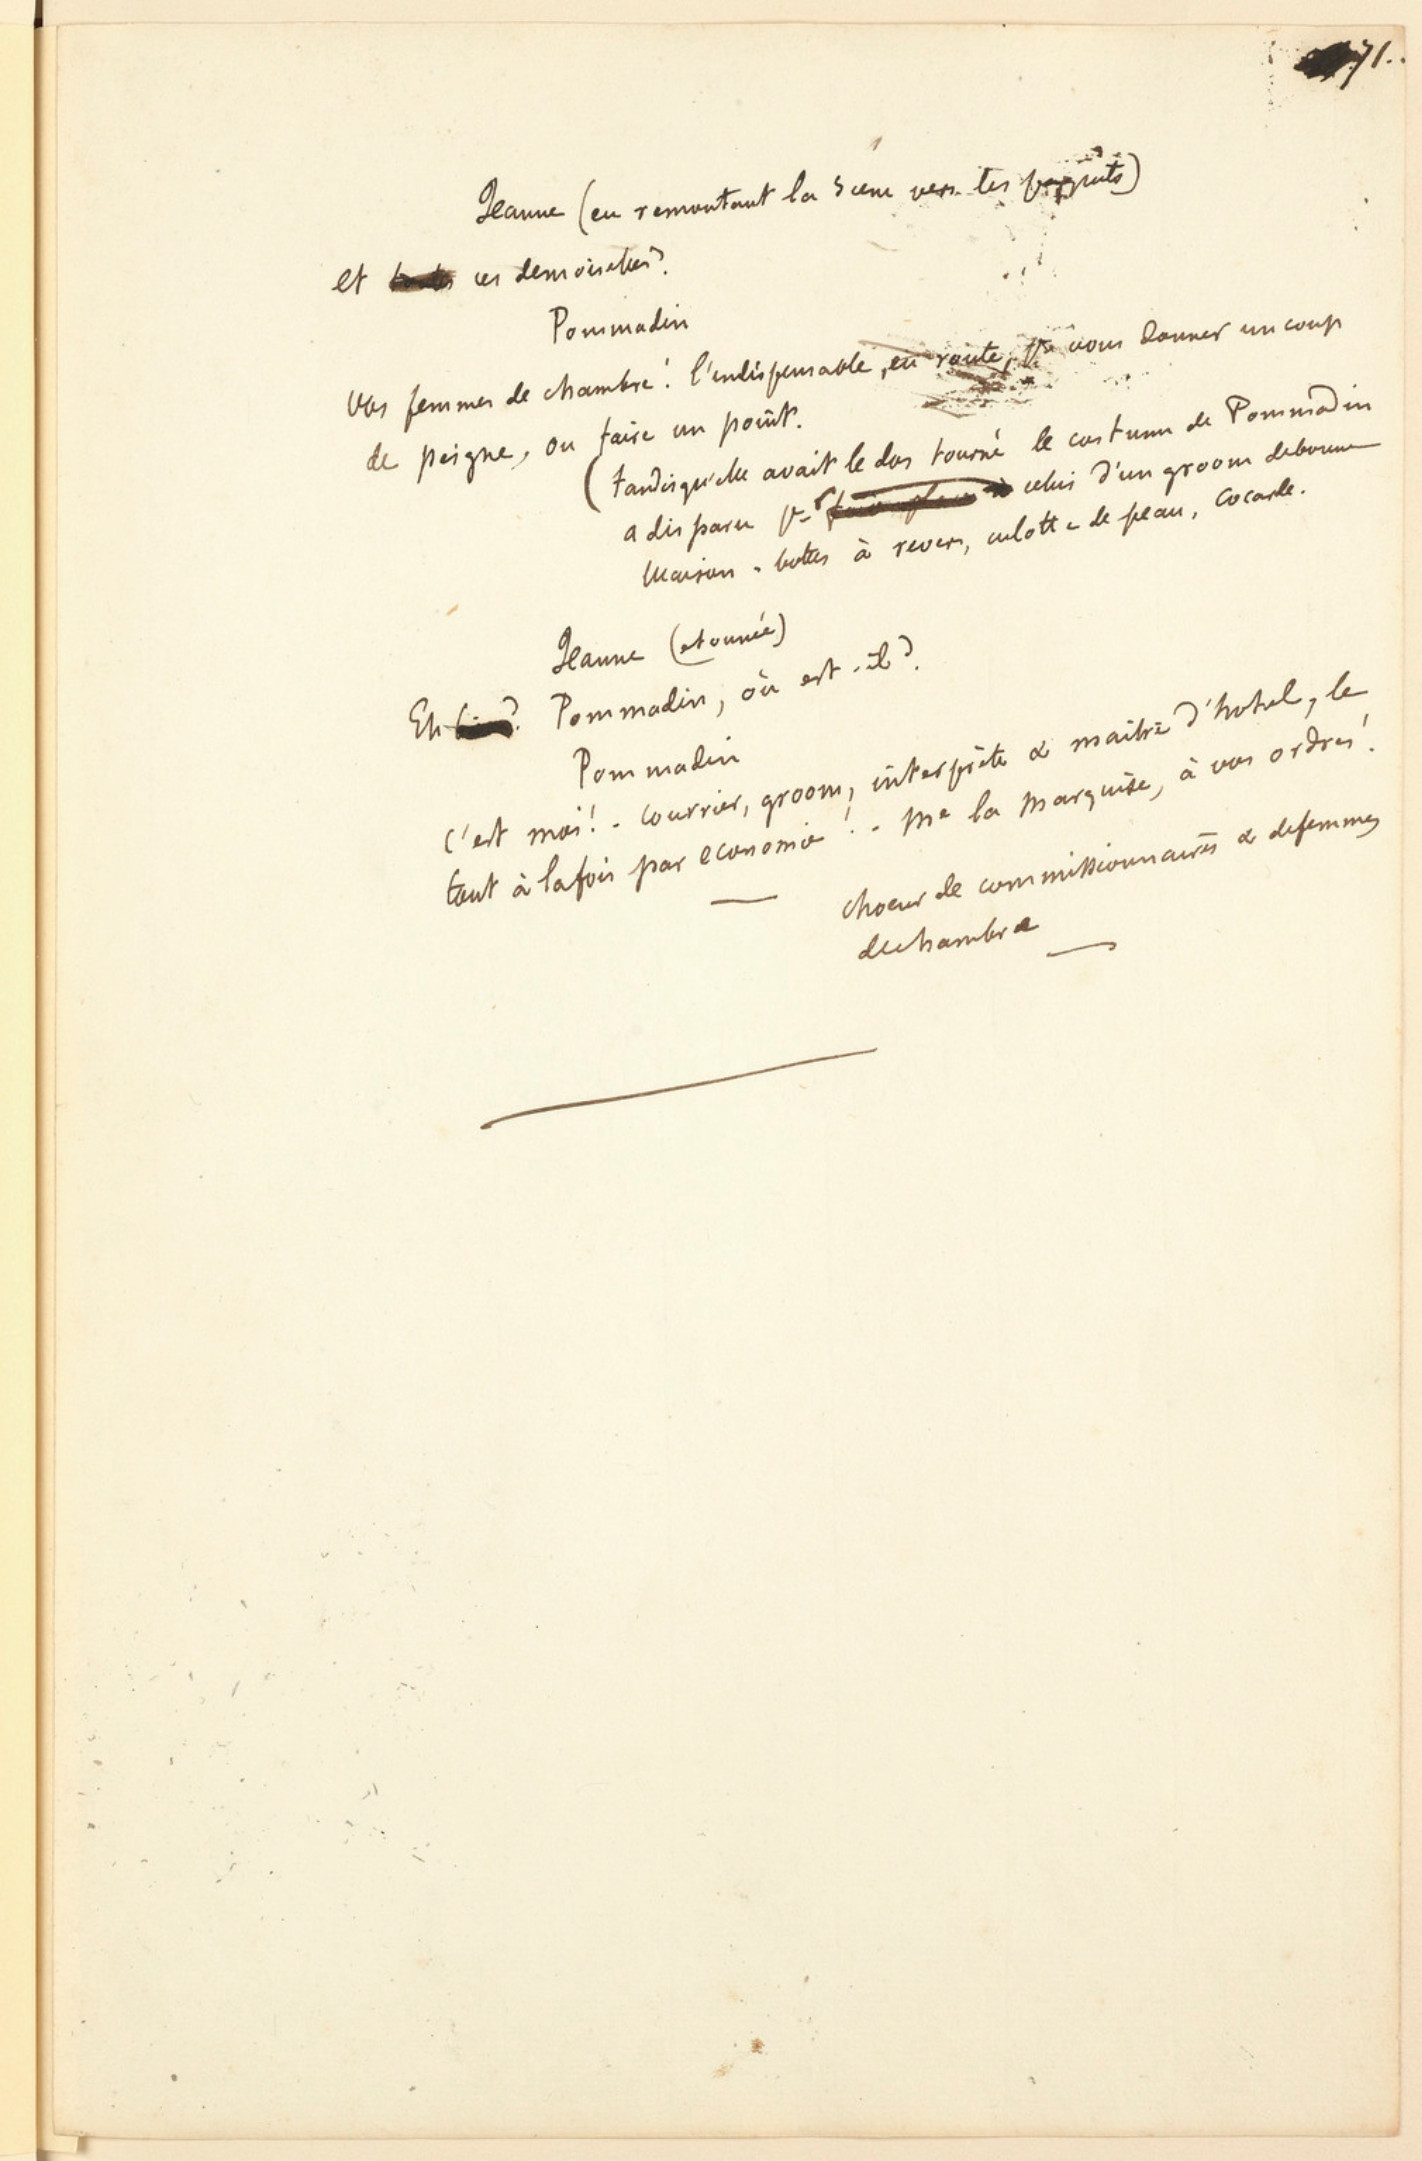 71.
Jeanne (en remontant la scène vers les paquets)
et toutes ces demoiselles?
Pommadin
Vos femmes de chambre! l'indispensable, en route, pr vous donner un coup
de peigne, ou faire un point.
(tandis qu'elle avait le dos tourné le costume de Pommadin
a disparu pr faire place à celui d'un groom de bonne
maison - bottes à revers, culotte de peau, cocarde.
Jeanne (etonnée)
Eh bien? Pommadin, où est-il?
Pommadin
C'est moi! - Courrier, groom, interprète & maitre d'hotel, le
tout à la fois par economie! - Me la Marquise, à vos ordres!
Choeur de commissionnaires & de femmes
de chambre